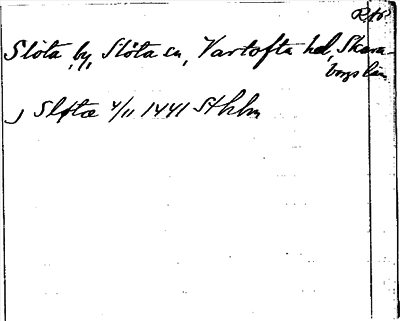 Slöta, by, Slöta sn, Vartofta hd, Skara-
borgs län
, Sløtæ 4/11 1441 Sthlm